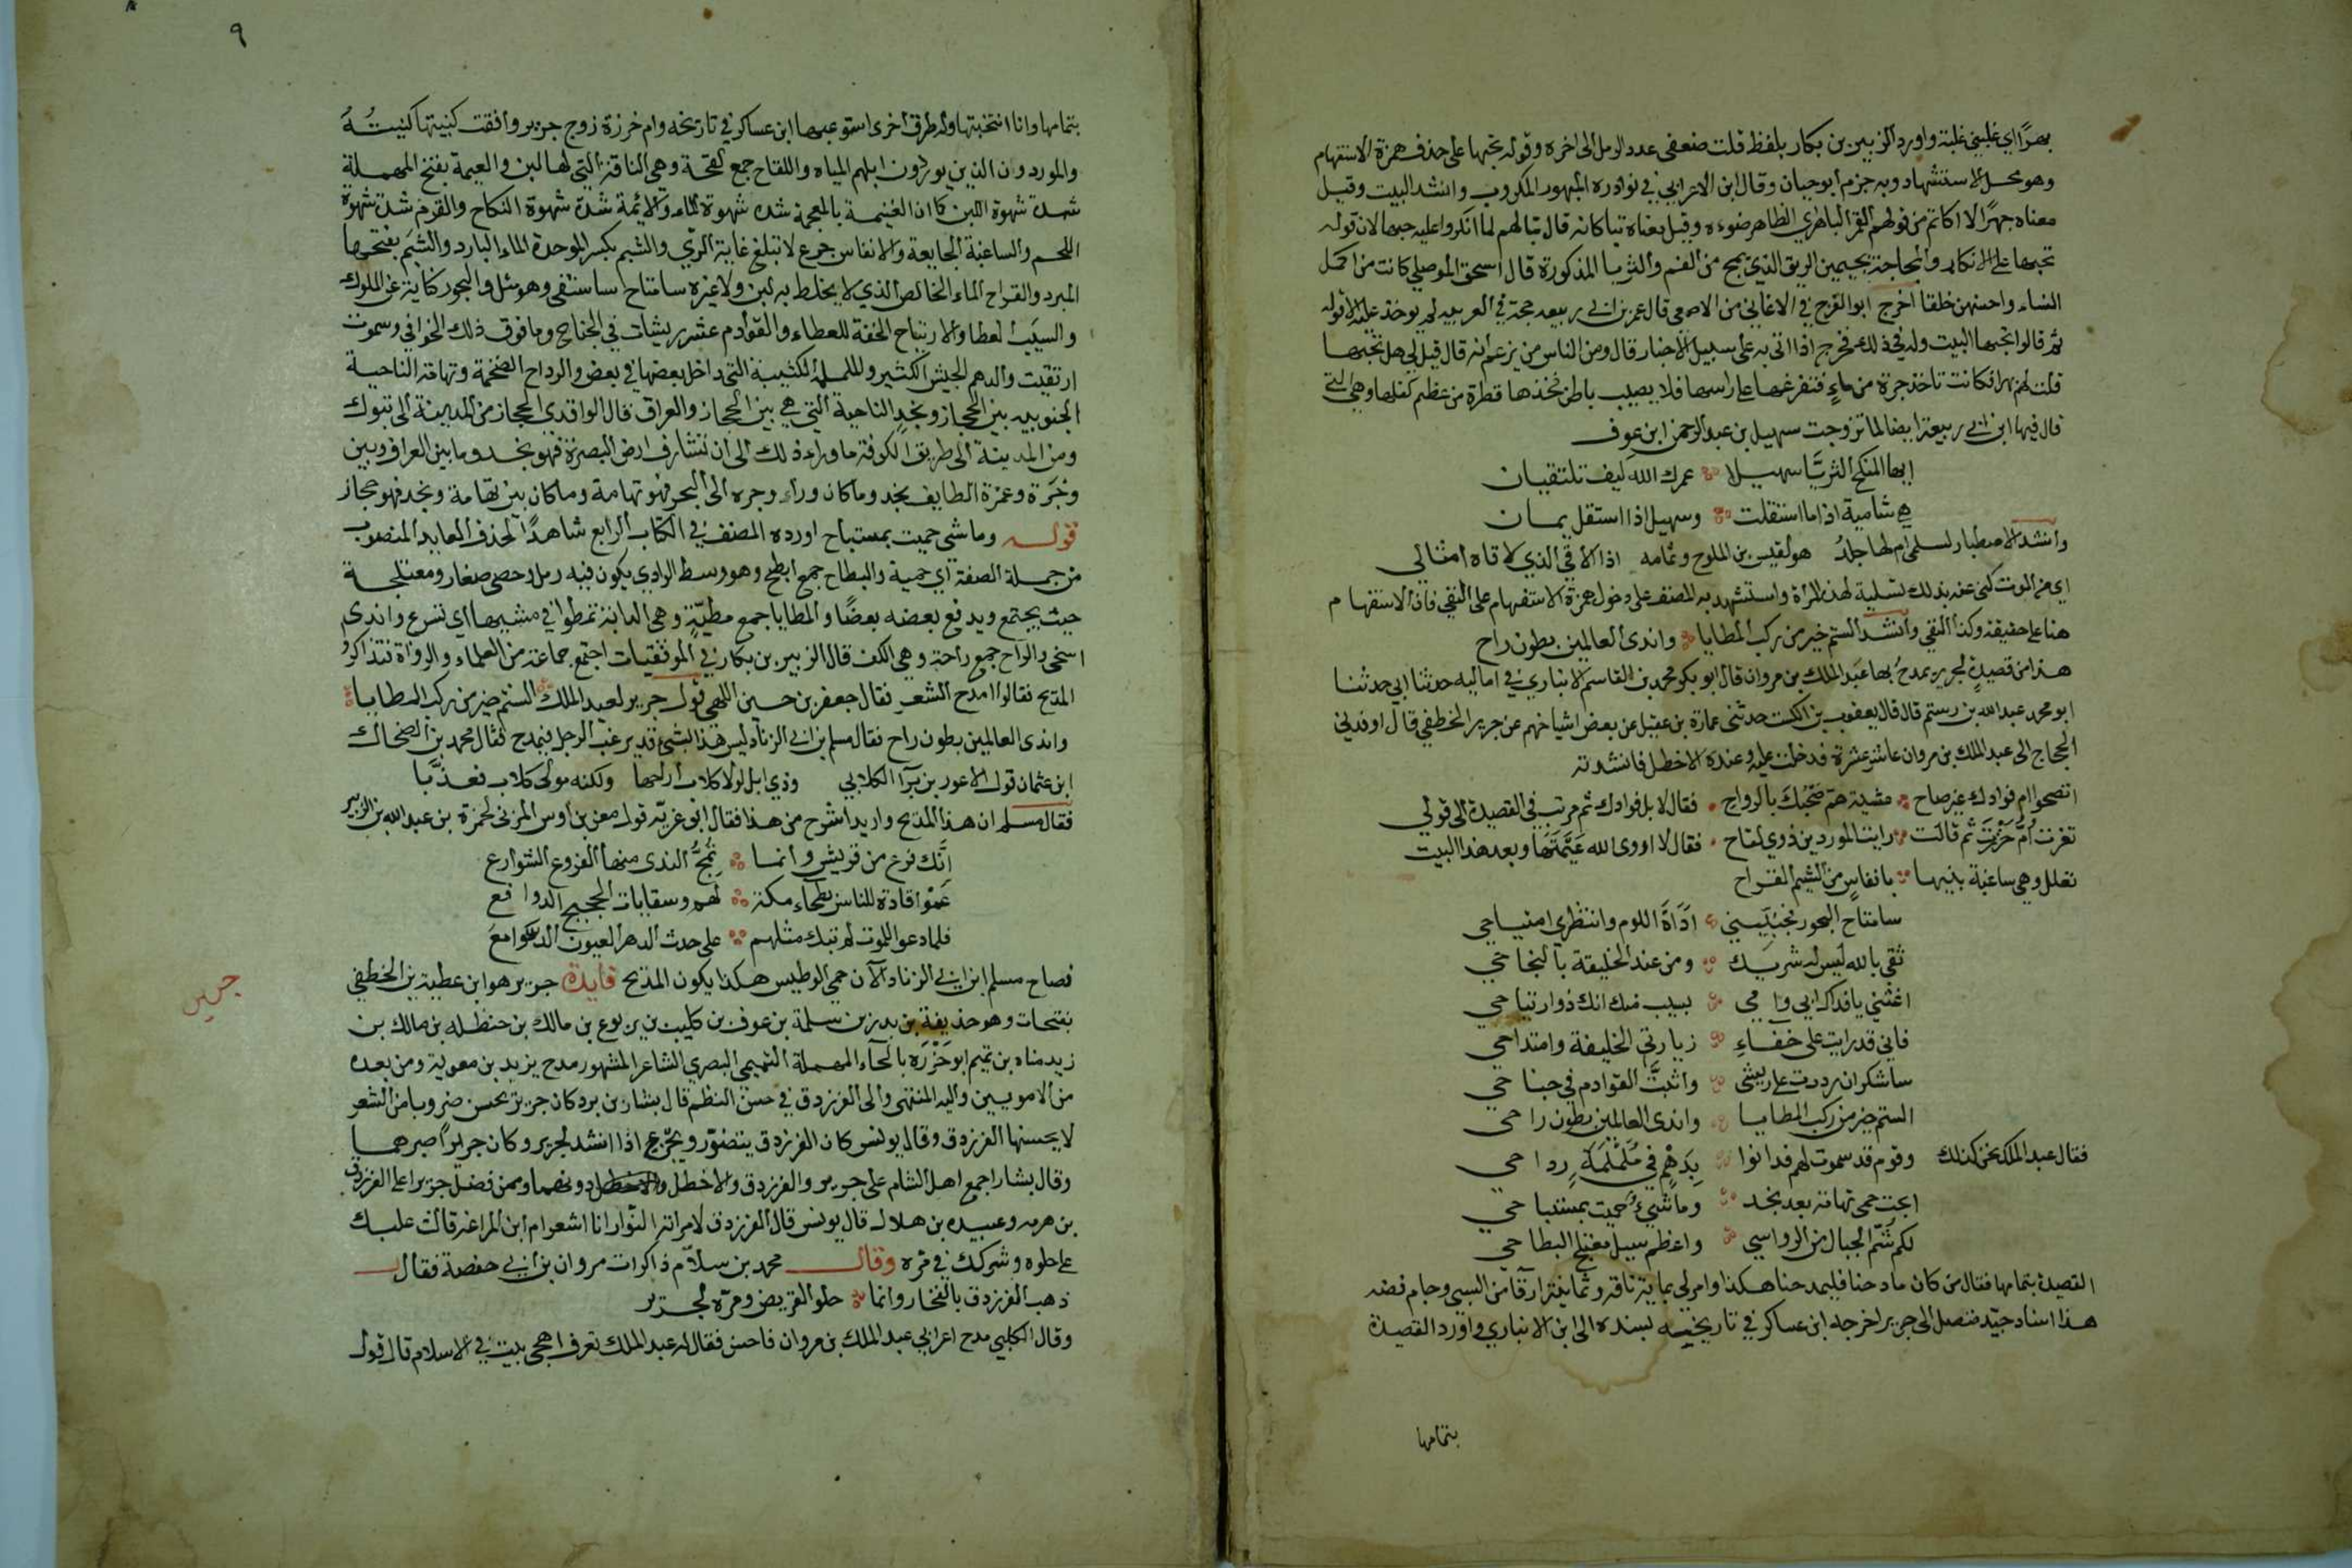 بهرًا اي غلبني غلبة واورد الزبير بن بكار بلفظ قلت ضعفي عدد الرمل الى اخره وقوله تحبها على حذف همزة الاستفهام
وهو محل الاستشهاد وبه جزم ابو حيان وقال ابن الاعرابي في نوادره المبهور المكروب وانشد البيت وقيل
معناه جهرًا لا اكاتم من قولهم القمر الباهر اي الظاهر ضوءه وقيل معناه تبا كانه قال تبا لهم لما انكروا عليه حبها لان قوله
تحبها على الانكار والمجاجة بجيمين الريق الذي يمج من الفم والثريا المذكورة قال اسحق الموصلي كانت من اكمل
النساء واحسنهن خلقا اخرج ابو الفرج في الاغاني من الاصمعي قال عمر بن ابي ربيعه حجة في العربيه لم يوخذ عليه الا قوله
ثم قالوا تحبها البيت وله في ذلك مخرج اذ اتى به على سبيل الاخبار قال ومن الناس من يزعم انه قال قيل لي هل تحبها
قلت بهرا فكانت تاخذ جرة من ماء فتفرغها على راسها فلا يصيب باطن فخذها قطرة من عظم كفلها وهي التي
قال فيها ابن ابي ربيعة ايضا لما تزوجت سهيل بن عبد الرحمن ابن عوف
ايها المنكح الثريا سهيلا عمرك الله كيف تلتقيان
هي شامية اذا ما استقلت وسهيل اذا استقل يمان
وانشد الا اصطبار لسلمى ام لها جلد هو لقيس بن الملوح وتمامه اذا الاقي الذي لاقاه امثالي
اي من الموت كنى عنه بذلك تسلية لهذه المراة واستشهد به المصنف على دخول همزة الاستفهام على النفي فان الاستفهام
هنا على حقيقته وكذا النفي وانشد الستم خير من ركب المطايا واندى العالمين بطون راح
هذا من قصيدة لجرير يمدح بها عبد الملك بن مروان قال ابو بكر محمد بن القاسم الانباري في اماليه حدثنا ابي حدثنا
ابو محمد عبد الله بن رستم قال قال يعقوب بن السكت حدثني عمارة بن عقيل عن بعض اشياخهم عن جرير الخطفي قال اوفدني
الحجاج الى عبد الملك بن مروان عاشر عشرة فدخلت عليه وعنده الاخطل فانشدته
اتصحوا ام فوادك غير صاح عشية هم صحبك بالرواح فقال لا بل فوادك ثم مر بي في القصيدة الى قولي
تعزت ام حزرة ثم قالت رايت الموردين ذوي لقاح فقال لا اروى الله عيمتها وبعد هذا البيت
تعلل وهي ساغبة بنيها بانفاس من الشبم القراح
سامتاح البحور فجنبيني اداة اللوم وانتظري امتياحي
ثقي بالله ليس له شريك ومن عند الخليفة بالنجاحي
اغثني يا فداك ابي وامي بسيب منك انك ذوارتياحي
فاني قد رايت على حقاء زيارتي الخليفة وامتداحي
ساشكر ان رددت علي ريشى واثبت القوادم في جناحي
الستم خير من ركب المطايا واندى العالمين بطون راحي
فقال عبد الملك نحن كذلك وقوم قد سموت لهم فدانوا بدهم في ململمة رداحي
ابحت حمى تهامة بعد نجد وما شيء حميت بمستباحي
لكم شم الجبال من الرواسي واعظم سيل معتلج البطاحي
القصيدة بتمامها فقال من كان مادحنا فليمدحنا هكذا وامر لي بماية ناقة وثمانية ارقا من السبي وجام فضه
هذا اسناد جيد متصل الى جرير اخرجه ابن عساكر في تاريخه بسنده الى ابن الانباري واورد القصيدة
بتمامها
٩
بتمامها وانا انتخبتها وله طرق اخرى استوعبها ابن عساكر في تاريخه وام حزرة زوج جرير وافقت كنيتها كنيته
والموردون الذين يوردون ابلهم المياه واللقاح جمع لقحة وهي الناقة التي لها لبن والعيمة بفتح المهملة
شدة شهوة اللبن كما ان الغيمة بالمعجمة شدة شهوة الماء والائمة شدة شهوة النكاح والقرم شدة شهوة
اللحم والساغبة الجايعة والانفاس جرع لا تبلغ غاية الري والشبم بكسر الموحدة الماء البارد والشبم بفتحها
البرد والقراح الماء الخالص الذي لا يخلط به لبن ولا غيره سامتاح ساستقى وهو مثل والبحور كناية عن الملوك
والسيب العطا والارتياح الخفة للعطاء والقوادم عشر ريشات في الجناح وما فوق ذلك الخوافي وسموت
ارتقيت والدهم الجيش الكثير والململة الكثيبة التي داخل بعضها في بعض والرداح الضخمة وتهامة الناحية
الجنوبيه بين الحجاز ونجد الناحية التي هي بين الحجاز والعراق قال الواقدي الحجاز من المدينة الى تبوك
ومن المدينة الى طريق الكوفة ما وراء ذلك الى ان تشارف ارض البصرة فهو نجد وما بين العراق وبين
وجرة وعمرة الطايف نجد وما كان وراء وجره الى البحر فهو تهامة وما كان بين تهامة ونجد فهو حجاز
قوله وما شى حميت بمستباح اورده المصنف في الكتاب الرابع شاهدًا لحذف العايد المنصوب
من جملة الصفة اي حميته والبطاح جمع ابطح وهو وسط الوادي يكون فيه رمل وحصى صغار ومعتلجة
حيث يجتمع ويدفع بعضه بعضًا والمطايا جمع مطية وهي الدابة تمطوا في مشيها اي تسرع واندى
اسخى والراح جمع راحة وهي الكف قال الزبير بن بكار في الموفقيات اجتمع جماعة من العلماء والرواة فتذاكروا
المديح فقالوا امدح الشعر فقال جعفر بن حسين اللهبي قول جرير لعبد الملك الستم خير من ركب المطايا
واندى العالمين بطون راح فقال مسلم بن ابي الزناد ليس هذا بشئ قد يرغب الرجل فيمدح فقال محمد بن الضحاك
ابن عثمان قول الاعور بن برا الكلابي وذي ابل لولا كلاب اراحها ولكنه مولى كلاب فعذبا
فقال مسلم ان هذا المديح واريد اشرح من هذا فقال ابو غزيه قول معن بن اوس المزني لحمزة بن عبد الله بن الزبير
انك فرع من قريش وانما تمج الندى منها الفروع الشوارع
غمو اقادة للناس بطحاء مكة لهم وسقايات الحجيج الدوافع
فلما دعوا للموت لم تبك مثلهم على حدث الدهر العيون الدوامع
فصاح مسلم ابن ابي الزناد الآن حمي الوطيس هكذا يكون المديح فايدة جرير هو ابن عطية بن الخطفى
جرير
بفتحات وهو حذيفة بن بدر بن سلمة بن عوف بن كليب بن يربوع بن مالك بن حنظله بن مالك بن
زيد مناه بن تميم ابو حزره بالحآء المهملة التميمي البصري الشاعر المشهور مدح يزيد بن معوية ومن بعده
من الامويين واليه المنتهى والى الفرزدق في حسن النظم قال بشار بن برد كان جرير يحسن ضروبا من الشعر
لا يحسنها الفرزدق وقال يونس كان الفرزدق يتضور ويجزع اذا انشد لجرير وكان جريرًا صبرهما
وقال بشار اجمع اهل الشام على جرير والفرزدق والاخطل والاخطل دونهما وممن فضل جريرا على الفرزدق
بن هرمه وعبيده بن هلال قال يونس قال الفرزدق لامراته النوار انا اشعر ام ابن المراغه قالت غلبك
على حلوه وشركك في مره وقال محمد بن سلام ذاكرت مروان بن ابي حفصة فقال
ذهب الفرزدق بالفخار وانما حلو القريض ومره لجرير
وقال الكلبي مدح اعرابي عبد الملك بن مروان فاحسن فقال له عبد الملك تعرف اهجى بيت في الاسلام قال قول